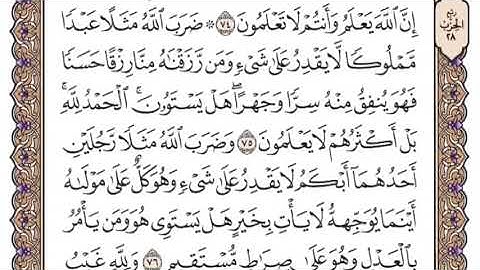 إِنَّ ٱللَّهَ يَعْلَمُ وَأَنتُمْ لَا تَعْلَمُونَ ٧٤ ۞ ضَرَبَ ٱللَّهُ مَثَلًا عَبْدًا
مَّمْلُوكًا لَّا يَقْدِرُ عَلَىٰ شَىْءٍ وَمَن رَّزَقْنَٰهُ مِنَّا رِزْقًا حَسَنًا
فَهُوَ يُنفِقُ مِنْهُ سِرًّا وَجَهْرًا ۖ هَلْ يَسْتَوُۥنَ ۚ ٱلْحَمْدُ لِلَّهِ ۚ
بَلْ أَكْثَرُهُمْ لَا يَعْلَمُونَ ٧٥ وَضَرَبَ ٱللَّهُ مَثَلًا رَّجُلَيْنِ
أَحَدُهُمَآ أَبْكَمُ لَا يَقْدِرُ عَلَىٰ شَىْءٍ وَهُوَ كَلٌّ عَلَىٰ مَوْلَىٰهُ
أَيْنَمَا يُوَجِّههُّ لَا يَأْتِ بِخَيْرٍ هَلْ يَسْتَوِى هُوَ وَمَن يَأْمُرُ
بِٱلْعَدْلِ وَهُوَ عَلَىٰ صِرَٰطٍ مُّسْتَقِيمٍ ٧٦ وَلِلَّهِ غَيْبُ
ربع
الحزب
٢٨